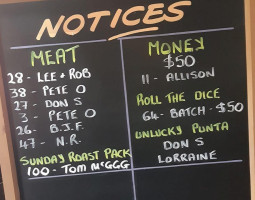 NOTICES
MEAT
28 - LEE + ROB
38 - PETE O
27 - DON S
3 - PETE O
26 - B.J.F.
47 - N.R.
SUNDAY ROAST PACK
100 - TOM McGGG
MONEY
$50
11 - ALLISON
ROLL THE DICE
64 - BATCH - $50
UNLUCKY PUNTA
DON S
LORRAINE